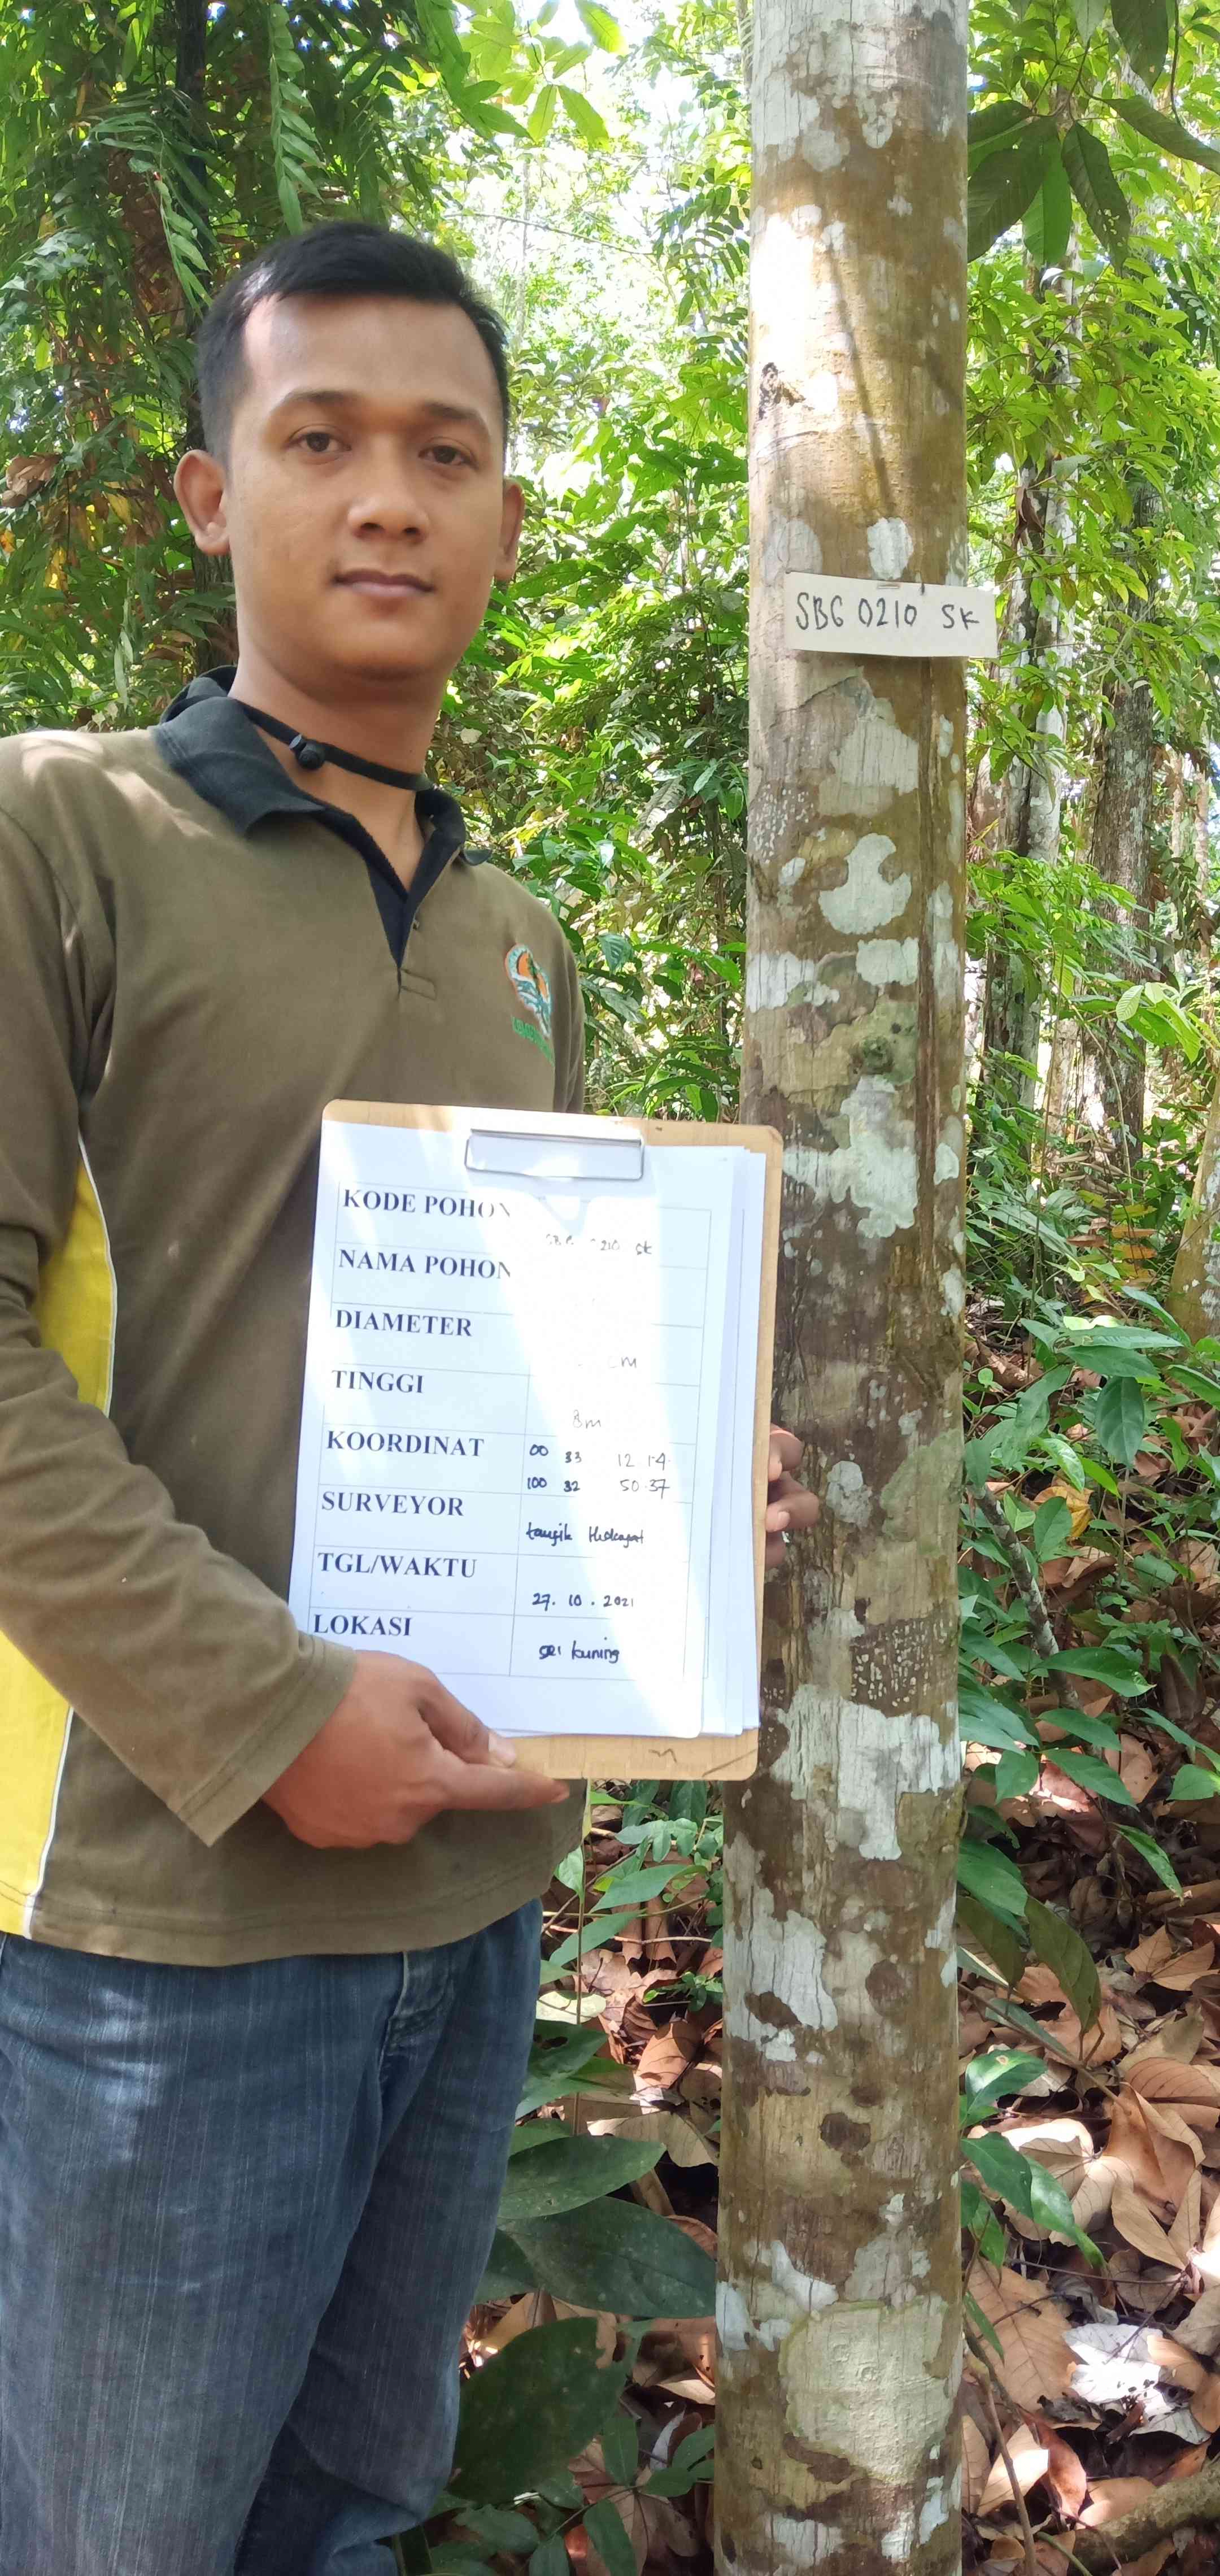 SBG 0210 SK
KODE POHON
SBG 0210 SK
NAMA POHON
DIAMETER
cm
TINGGI
8m
KOORDINAT
00 33 12.14
100 32 50.37
SURVEYOR
taufik Hidayat
TGL/WAKTU
27.10.2021
LOKASI
sei kuning